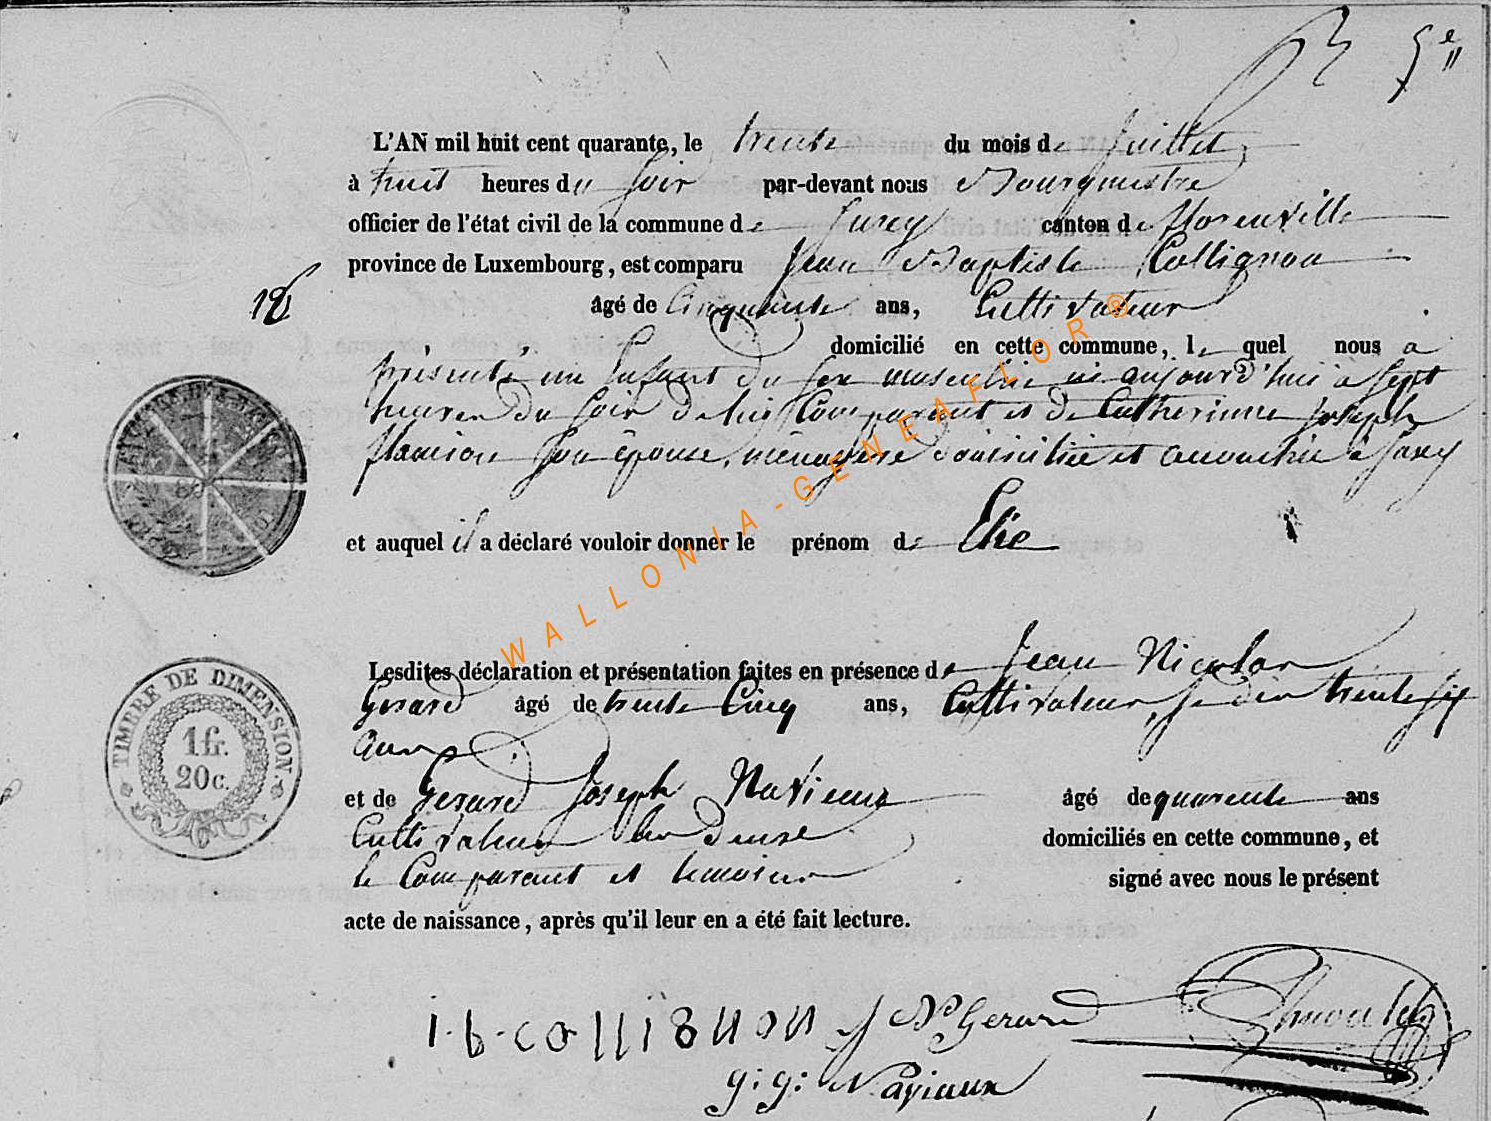 5e
L'AN mil huit cent quarante, le trente du mois de Juillet
à huit heures du Soir par-devant nous Bourgmestre
officier de l'état civil de la commune de Izel canton de Florenville
province de Luxembourg, est comparu Jean Baptiste Collignon
âgé de Cinquante ans, Cultivateur
domicilié en cette commune, lequel nous a
présenté un Enfant du sex masculin né aujourd'hui à sept
heures du soir de lui Comparant et de Catherinne Joseph
flamion son épouse, ménagère domiciliée et accouchée à
et auquel il a déclaré vouloir donner le prénom de Elie
Lesdites déclaration et présentation faites en présence de Jean Nicolas
Gerard âgé de trente Cinq ans, Cultivateur, trente six
ans
et de Gerard Joseph Naviaux âgé de quarente ans
Cultivateur domiciliés en cette commune, et
le Comparant et temoins signé avec nous le présent
acte de naissance, après qu'il leur en a été fait lecture.
TIMBRE DE DIMENSION.
1 fr.
20 c.
i-b-collignon j N Gerard
g: g: Naviaux
WALLONIA-GENEAFLOR®